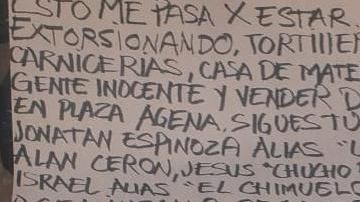 ESTO ME PASA X ESTAR
EXTORSIONANDO, TORTIllER
CARNICERIAS, CASA DE MATE
GENTE INOCENTE Y VENDER D
EN PLAZA AGENA. SIGUES TU
JONATAN ESPINOZA ALIAS "L
ALAN CERON, JESUS "CHUCHO"
ISRAEL ALIAS "EL CHIMUELO